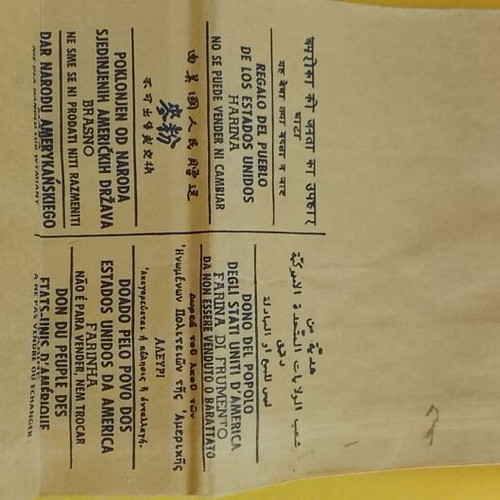 अमरीका की जनता का उपहार
आटा
यह बेचा तथा बदला न जाय
REGALO DEL PUEBLO
DE LOS ESTADOS UNIDOS
HARINA
NO SE PUEDE VENDER NI CAMBIAR
由美國人民贈送
麥粉
不可出售或交換
POKLONJEN OD NARODA
SJEDINJENIH AMERIČKIH DRŽAVA
BRASNO
NE SME SE NI PRODATI NITI RAZMENITI
DAR NARODU AMERYKAŃSKIEGO
هدية من
شعب الولايات المتحدة الاميركية
دقيق
ليس للبيع او المبادلة
DONO DEL POPOLO
DEGLI STATI UNITI D'AMERICA
FARINA DI FRUMENTO
DA NON ESSERE VENDUTO O BARATTATO
Δωρεά τοῦ λαοῦ τῶν
Ἡνωμένων Πολιτειῶν τῆς Ἀμερικῆς
ΑΛΕΥΡΙ
Ἀπαγορεύεται ἡ πώλησις ἤ ἀνταλλαγή.
DOADO PELO POVO DOS
ESTADOS UNIDOS DA AMERICA
FARINHA
NÃO É PARA VENDER, NEM TROCAR
DON DU PEUPLE DES
ETATS-UNIS D'AMÉRIQUE
A NE PAS VENDRE OU ECHANGER